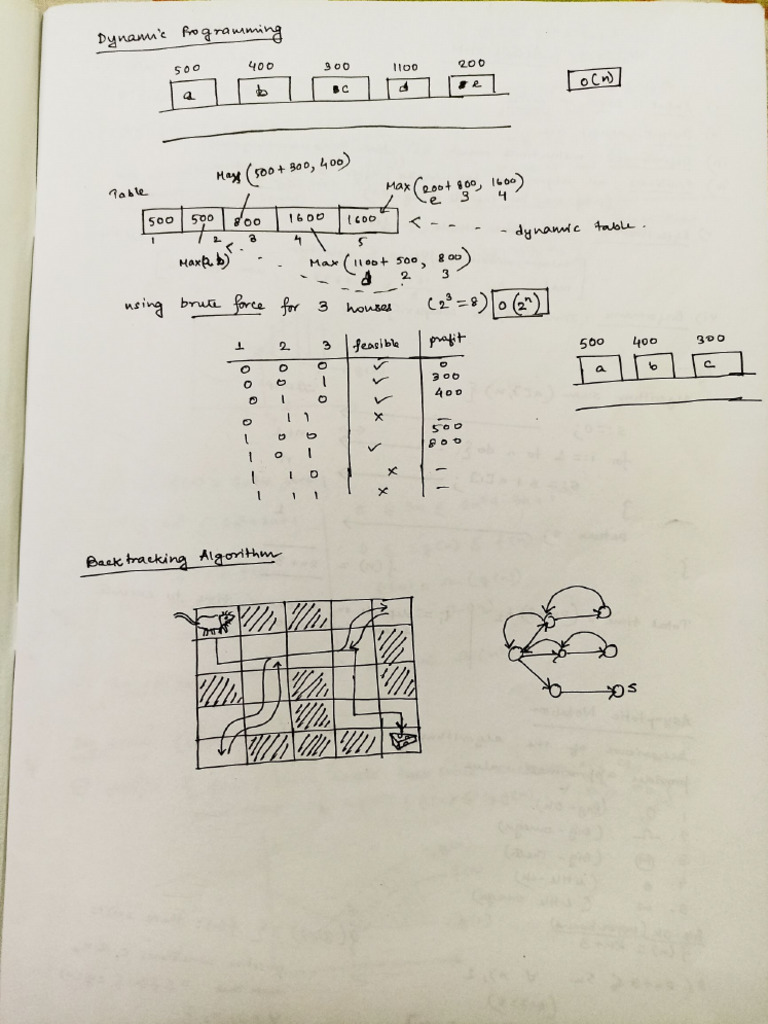 Dynamic Programming
500 400 300 1100 200
a b c d e O(n)
Max(500+300, 400)
Table Max(200+800, 1600)
e 3 4
500 500 800 1600 1600 <- - - - - dynamic table.
1 2 3 4 5
Max(a, b) Max(1100+500, 800)
d 2 3
using brute force for 3 houses (2³=8) O(2ⁿ)
500 400 300
a b c
1 2 3 feasible profit
0 0 0 ✓ 0
0 0 1 ✓ 300
0 1 0 ✓ 400
0 1 1 × –
1 0 0 500
1 0 1 ✓ 800
1 1 0 × –
1 1 1 × –
Backtracking Algorithm
S